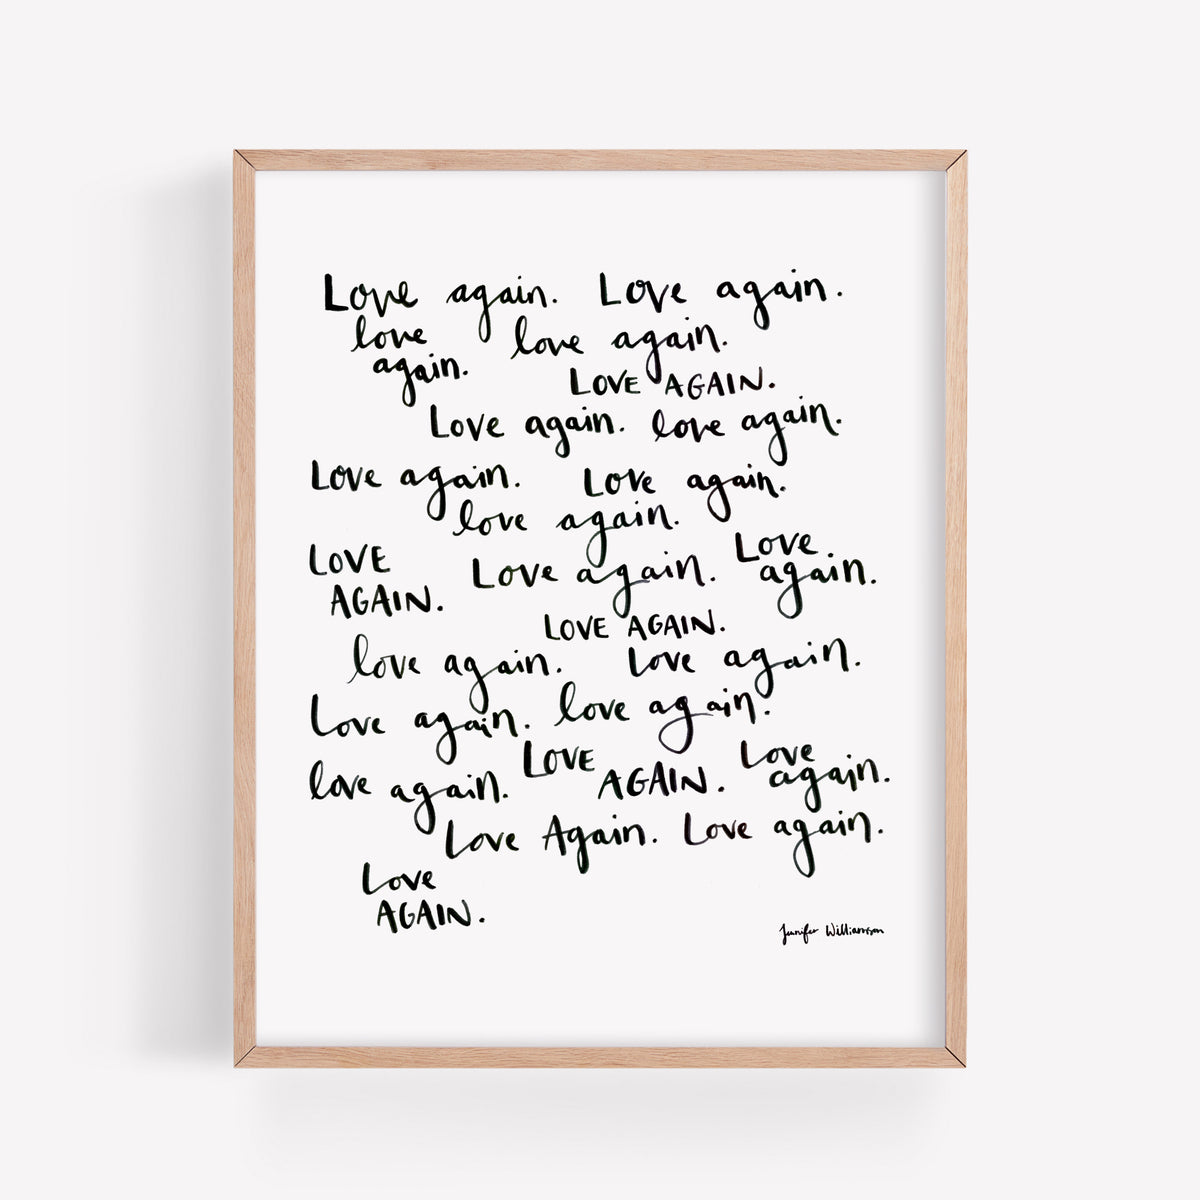 Love again. Love again.
love again. love again.
LOVE AGAIN.
Love again. love again.
Love again. Love again.
love again.
LOVE AGAIN. Love again. Love again.
LOVE AGAIN.
love again. Love again.
Love again. love again.
love again. LOVE AGAIN. Love again.
Love Again. Love again.
Love AGAIN.
Jennifer Williamson